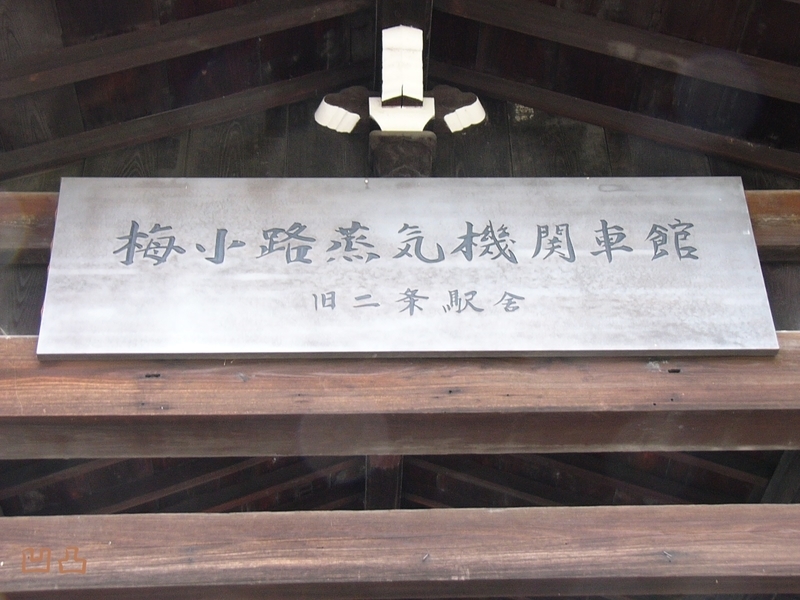 梅小路蒸気機関車館
旧二条駅舎
凹凸